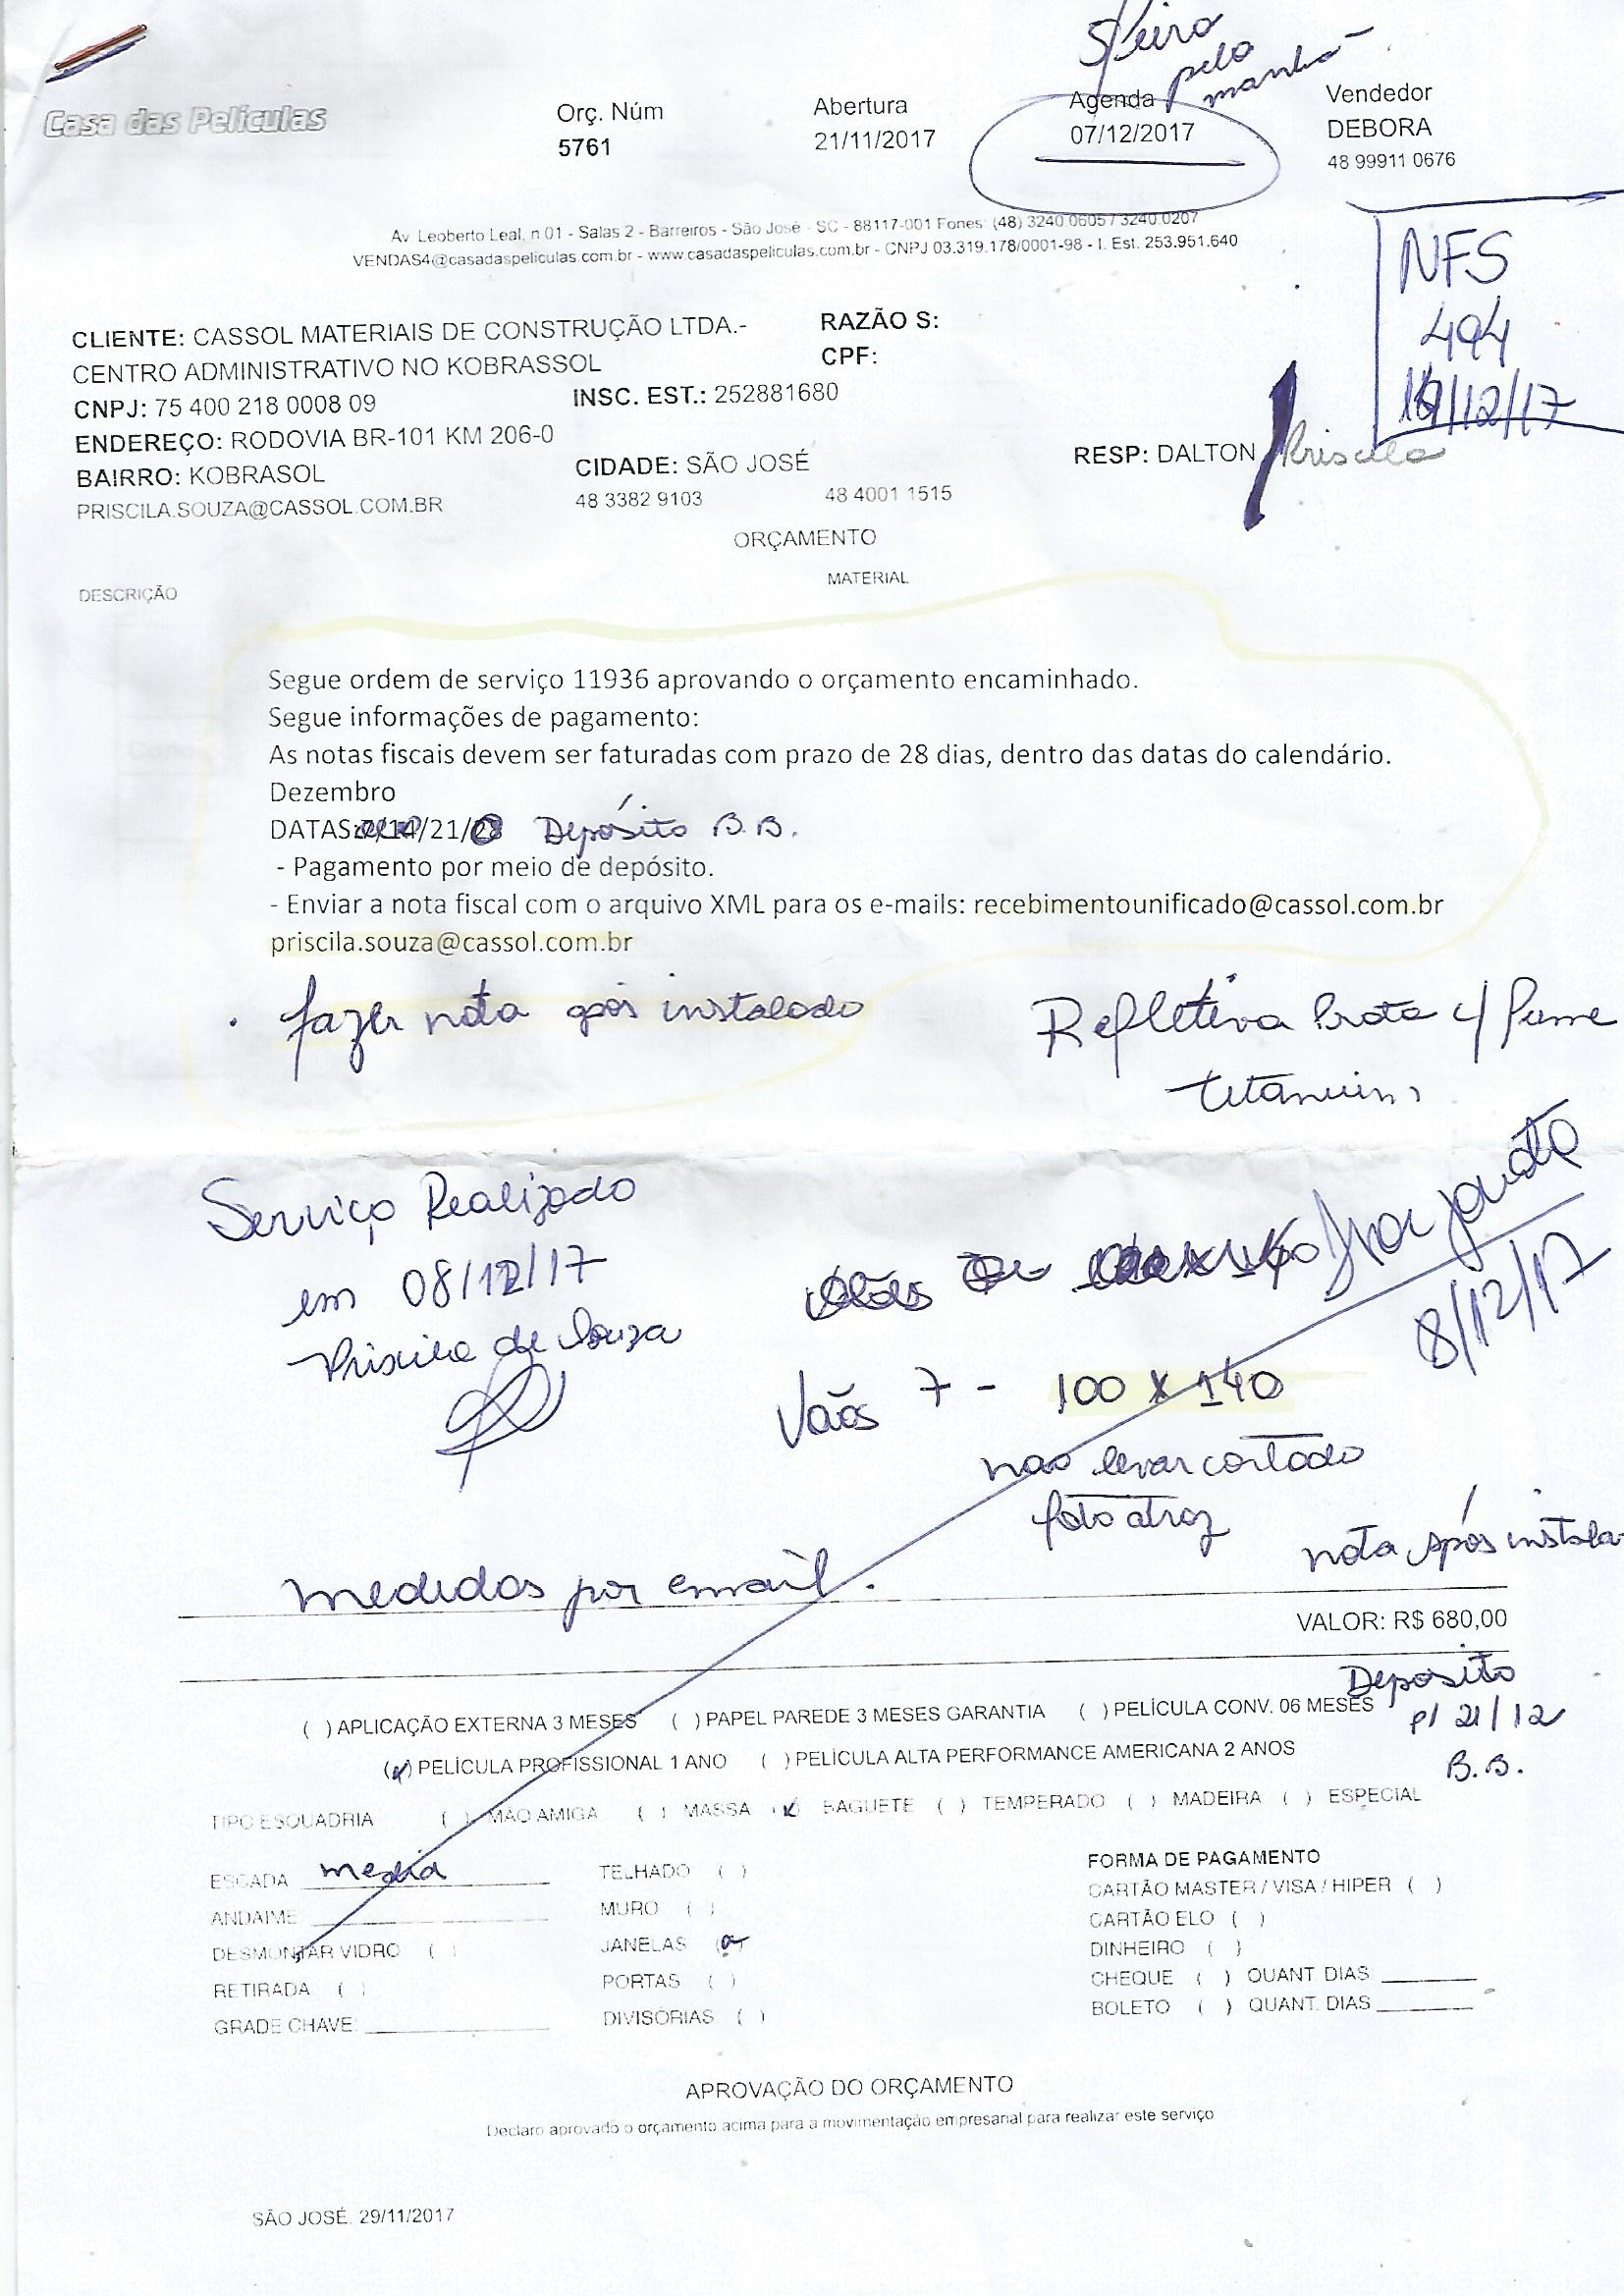 5/feira
pelo
manhã
Casa das Películas
Orç. Núm
5761
Abertura
21/11/2017
Agenda
07/12/2017
Vendedor
DEBORA
48 99911 0676
Av. Leoberto Leal, n 01 - Salas 2 - Barreiros - São José - SC - 88117-001 Fones: (48) 3240.0605 / 3240.0207
VENDAS4@casadaspeliculas.com.br - www.casadaspeliculas.com.br - CNPJ 03.319.178/0001-98 - I. Est. 253.951.640
NFS
494
/12/17
CLIENTE: CASSOL MATERIAIS DE CONSTRUÇÃO LTDA.-
CENTRO ADMINISTRATIVO NO KOBRASSOL
RAZÃO S:
CPF:
CNPJ: 75 400 218 0008 09
INSC. EST.: 252881680
ENDEREÇO: RODOVIA BR-101 KM 206-0
BAIRRO: KOBRASOL
CIDADE: SÃO JOSÉ
RESP: DALTON / Priscila
PRISCILA.SOUZA@CASSOL.COM.BR
48 3382 9103
48 4001 1515
ORÇAMENTO
MATERIAL
DESCRIÇÃO
Segue ordem de serviço 11936 aprovando o orçamento encaminhado.
Segue informações de pagamento:
As notas fiscais devem ser faturadas com prazo de 28 dias, dentro das datas do calendário.
Dezembro
DATAS: 7/14/21/28 Depósito B.B.
- Pagamento por meio de depósito.
- Enviar a nota fiscal com o arquivo XML para os e-mails: recebimentounificado@cassol.com.br
priscila.souza@cassol.com.br
. fazer nota após instalado
Refletiva Prata c/ fume
titanium
Serviço Realizado
em 08/12/17
Priscila de Souza
8/12/17
Vãos 7 - 100 x 140
não levar cortado
foto atraz
nota após instala
medidas por email.
VALOR: R$ 680,00
Deposito
p/ 21/12
B.B.
( ) APLICAÇÃO EXTERNA 3 MESES ( ) PAPEL PAREDE 3 MESES GARANTIA ( ) PELÍCULA CONV. 06 MESES
(x) PELÍCULA PROFISSIONAL 1 ANO ( ) PELÍCULA ALTA PERFORMANCE AMERICANA 2 ANOS
TIPO ESQUADRIA ( ) MÃO AMIGA ( ) MASSA (x) BAGUETE ( ) TEMPERADO ( ) MADEIRA ( ) ESPECIAL
ESCADA media
ANDAIME
DESMONTAR VIDRO ( )
RETIRADA ( )
GRADE CHAVE:
TELHADO ( )
MURO ( )
JANELAS (a)
PORTAS ( )
DIVISÓRIAS ( )
FORMA DE PAGAMENTO
CARTÃO MASTER / VISA / HIPER ( )
CARTÃO ELO ( )
DINHEIRO ( )
CHEQUE ( ) QUANT DIAS
BOLETO ( ) QUANT. DIAS
APROVAÇÃO DO ORÇAMENTO
Declaro aprovado o orçamento acima para a movimentação empresarial para realizar este serviço
SÃO JOSÉ. 29/11/2017